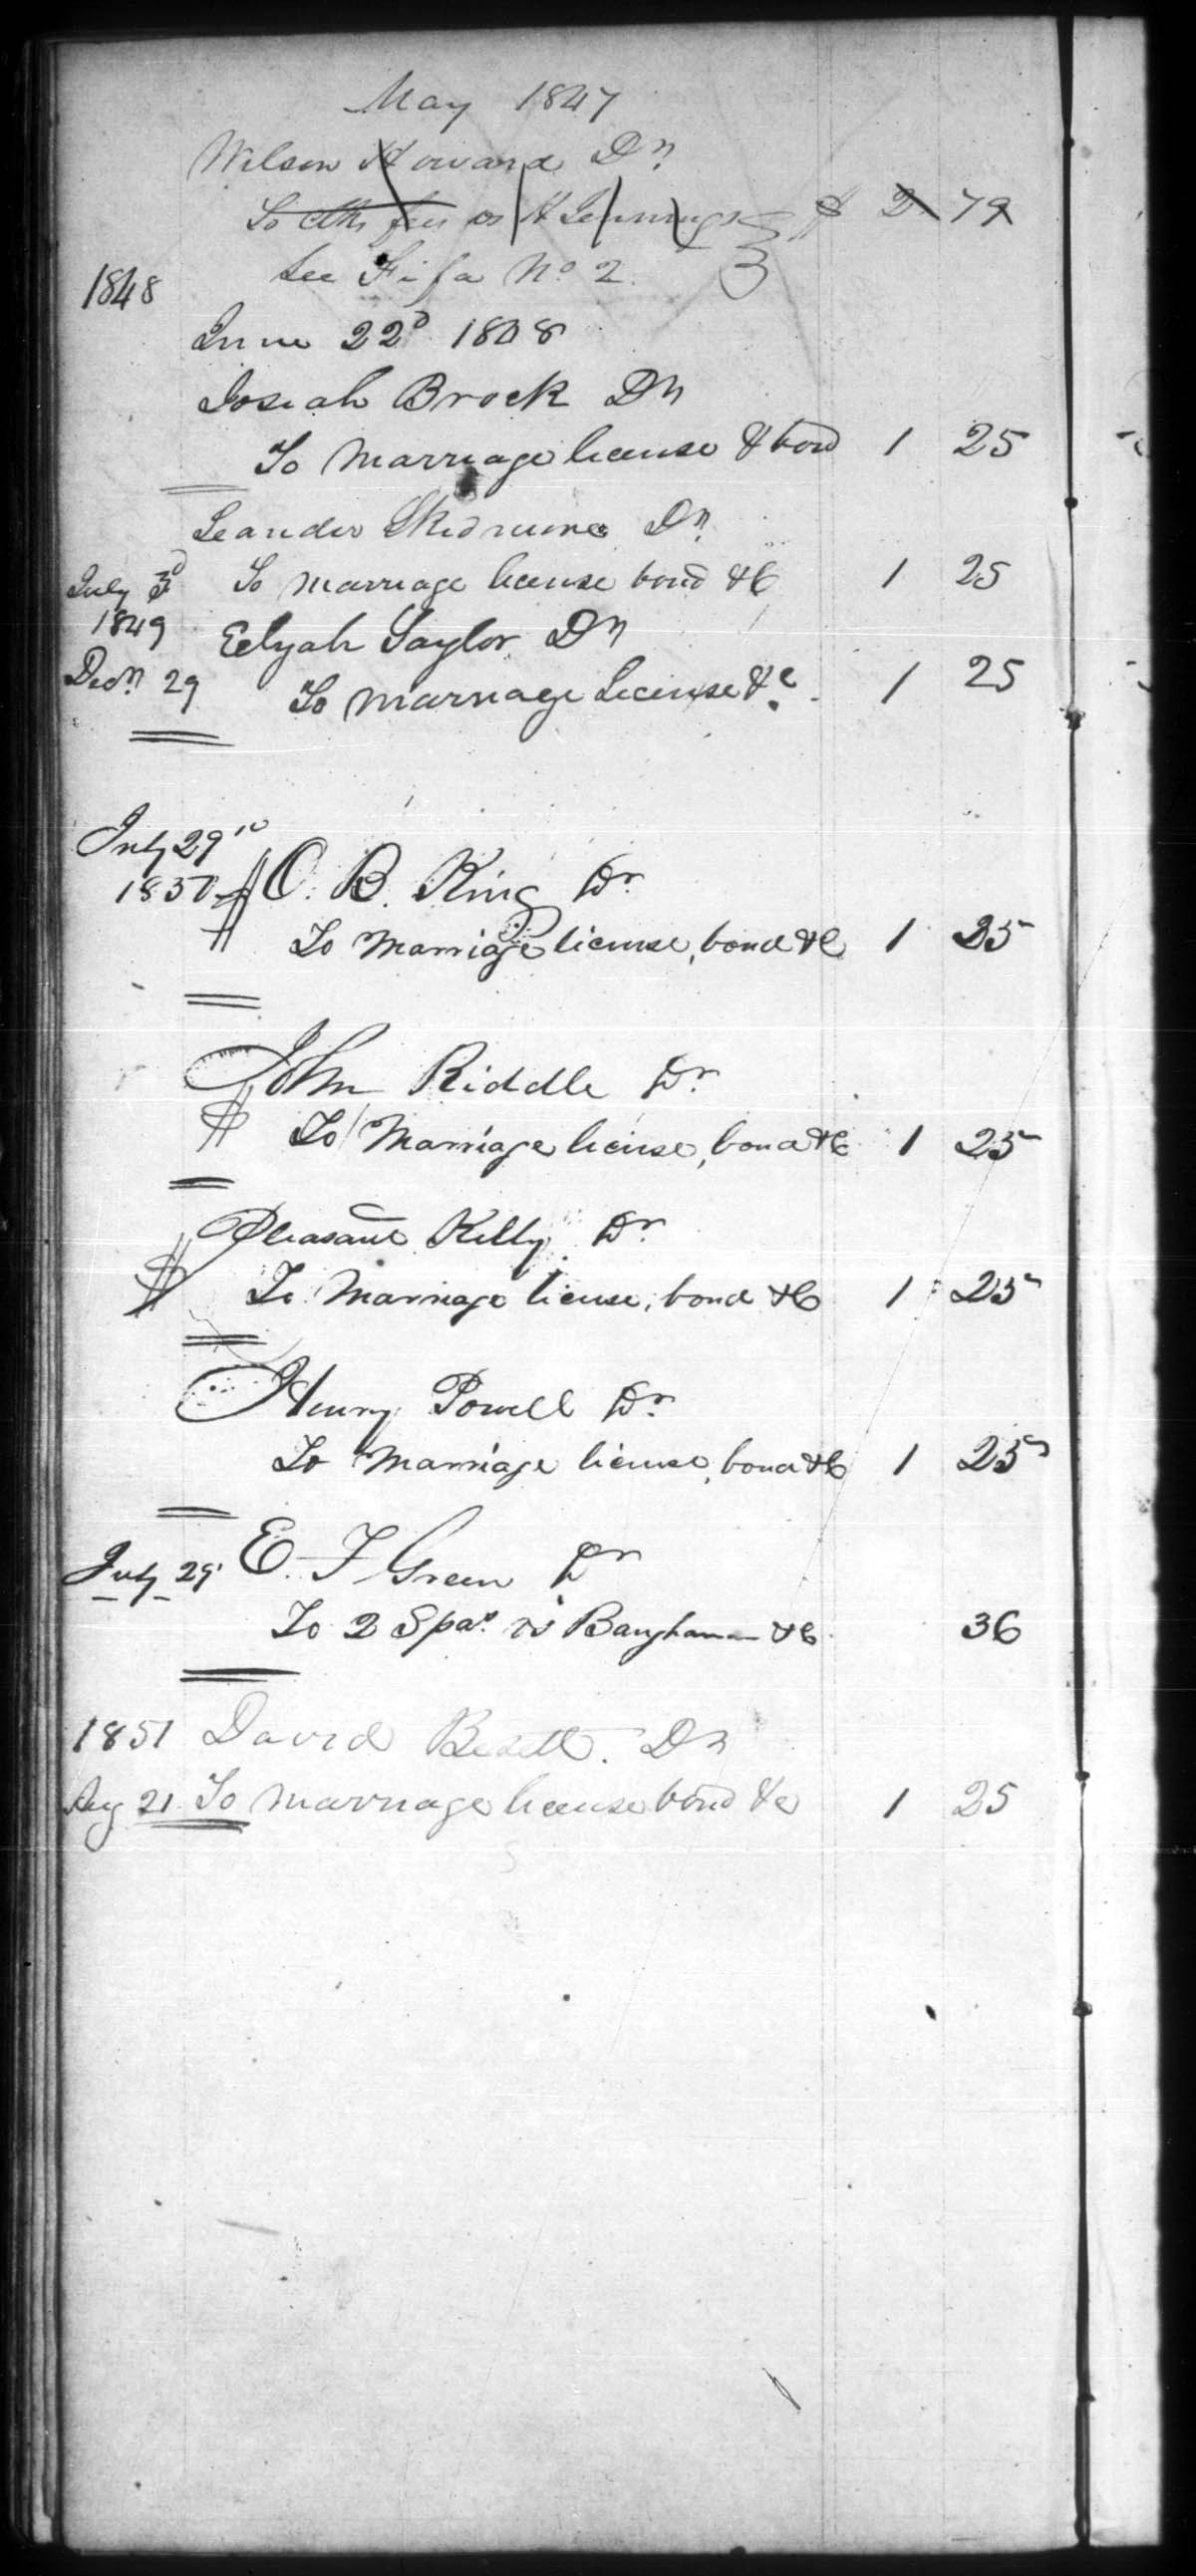 May 1847
Wilson Howard Dr.
To Clks fees vs H Jennings $ 2 79
See Fi fa No 2.
1848
June 22d 1848
Josiah Brock Dr
To Marriage license & bond 1 25
Leander Skidmore Dr.
July 3d To marriage license bond &C 1 25
1849 Elijah Saylor Dr
Decr. 29 To marriage License &c. 1 25
July 29th
1850 C. B. King Dr
To Marriage license, bond &C 1 25
John Riddle Dr.
$ To Marriage license, bond &C 1 25
Pleasant Kelly Dr
$ To Marriage license, bond &C 1 25
Henry Powell Dr.
To Marriage license, bond &C 1 25
July 29 E. F Green Dr
To 2 Spas. vs Baughman &C 36
1851 David Dr
Aug 21 To marriage license bond &c 1 25